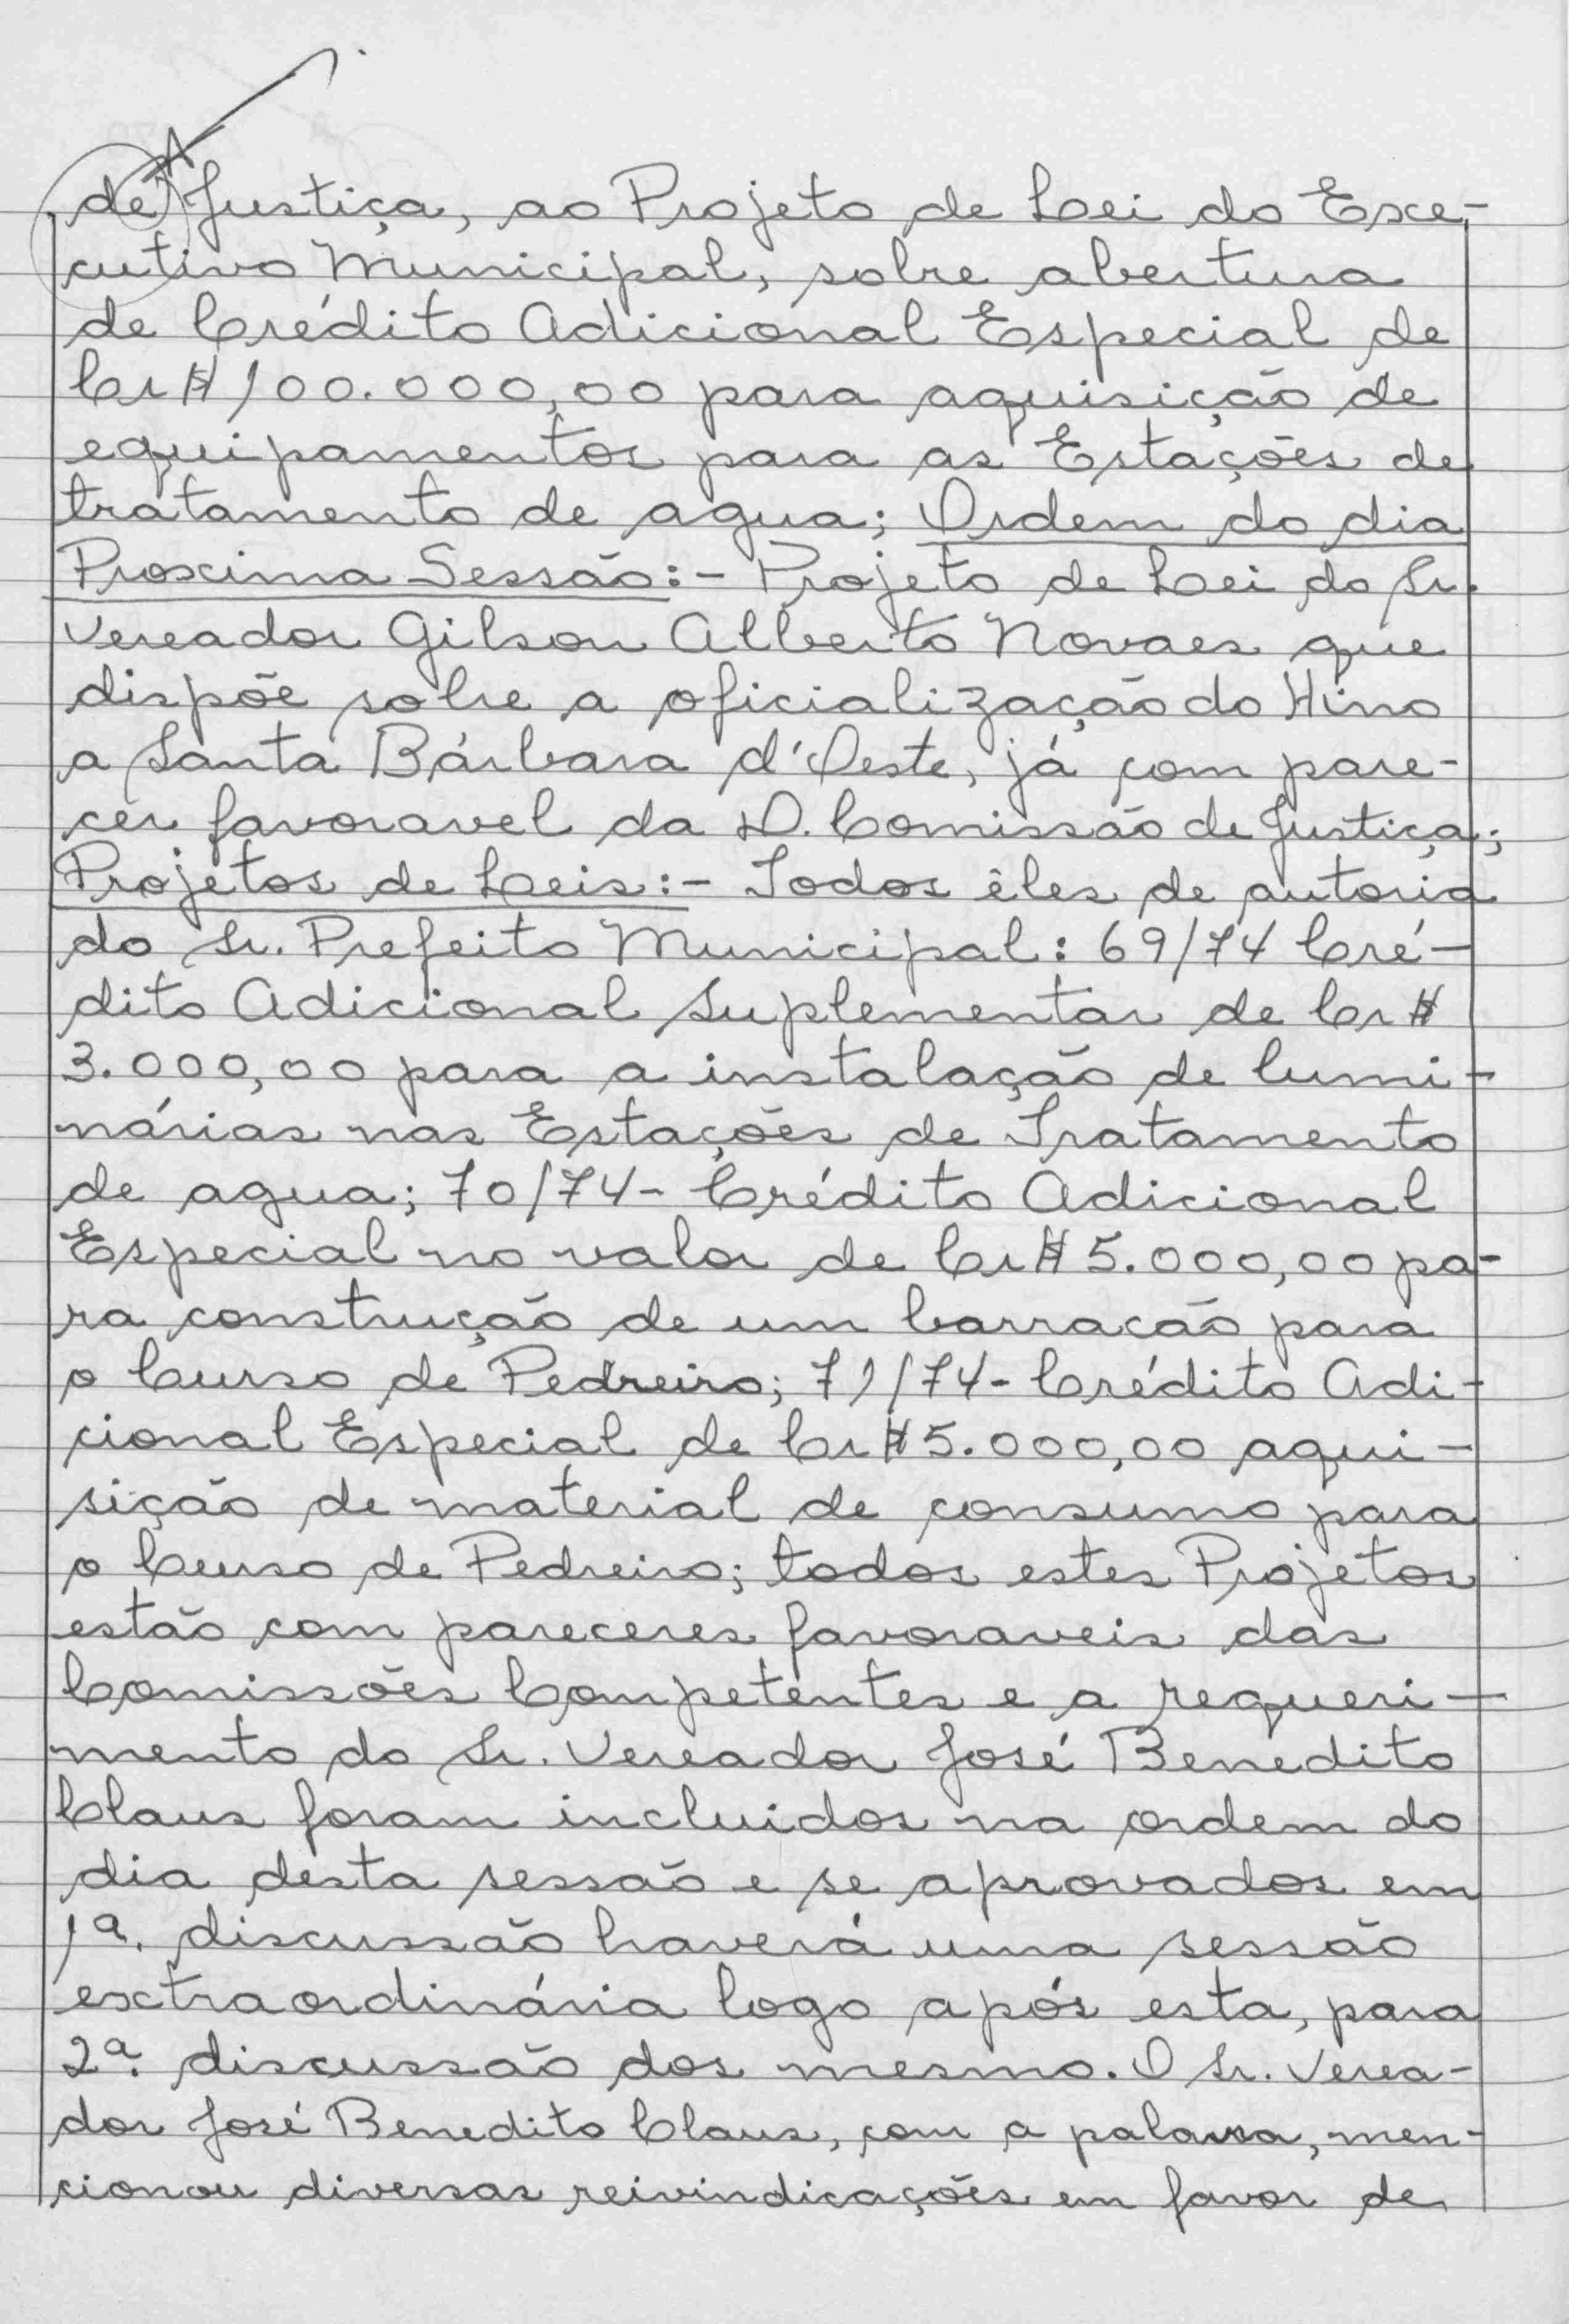 de Justiça, ao Projeto de Lei do Exe-
cutivo Municipal, sobre abertura
de Crédito Adicional Especial de
Cr$ 100.000,00 para aquisição de
equipamentos para as Estações de
tratamento de agua; Ordem do dia
Proxima Sessão:- Projeto de Lei do Sr.
Vereador Gilson Alberto Novaes que
dispõe sobre a oficialização do Hino
a Santa Bárbara d'Oeste, já com pare-
cer favoravel da D. Comissão de Justiça;
Projetos de Leis:- Todos êles de autoria
do Sr. Prefeito Municipal: 69/74 Cré-
dito Adicional Suplementar de Cr$
3.000,00 para a instalação de lumi-
nárias nas Estações de Tratamento
de agua; 70/74- Crédito Adicional
Especial no valor de Cr$ 5.000,00 pa-
ra construção de um barracão para
o Curso de Pedreiro; 71/74- Crédito Adi-
cional Especial de Cr$ 5.000,00 aqui-
sição de material de consumo para
o Curso de Pedreiro; todos estes Projetos
estão com pareceres favoraveis das
Comissões Competentes e a requeri-
mento do Sr. Vereador José Benedito
Claus foram incluidos na ordem do
dia desta sessão e se aprovados em
1ª. discussão haverá uma sessão
extraordinária logo após esta, para
2ª. discussão dos mesmo. O Sr. Verea-
dor José Benedito Claus, com a palavra, men-
cionou diversas reivindicações em favor de